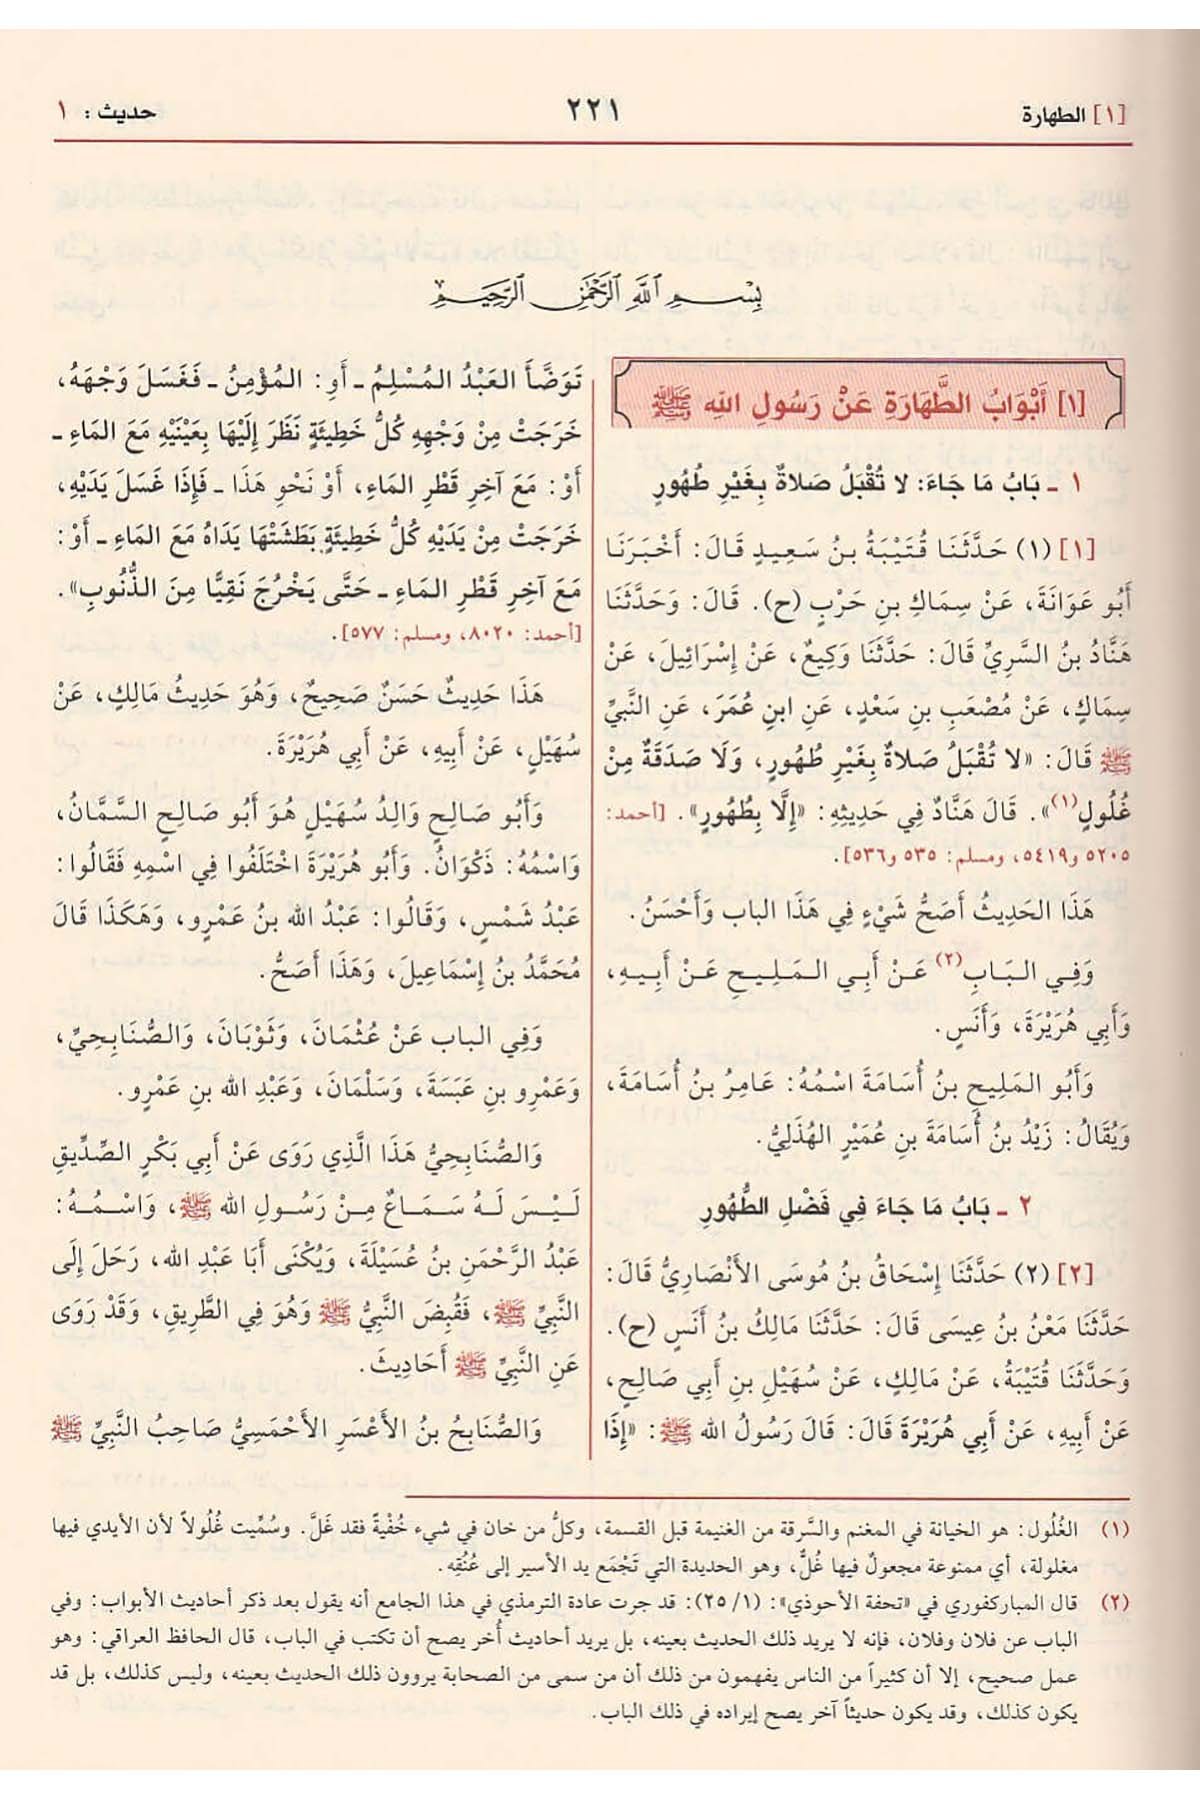 [١] الطهارة
٢٢١
حديث : ١
بِسْمِ اللَّهِ الرَّحْمَنِ الرَّحِيمِ
[١] أَبْوَابُ الطَّهَارَةِ عَنْ رَسُولِ اللهِ ﷺ
١ - بَابُ مَا جَاءَ: لا تُقْبَلُ صَلاةٌ بِغَيْرِ طُهُورٍ
[١] (١) حَدَّثَنَا قُتَيْبَةُ بنُ سَعِيدٍ قَالَ: أَخْبَرَنَا
أَبُو عَوَانَةَ، عَنْ سِمَاكِ بنِ حَرْبٍ (ح). قَالَ: وَحَدَّثَنَا
هَنَّادُ بنُ السَّرِيِّ قَالَ: حَدَّثَنَا وَكِيعٌ، عَنْ إِسْرَائِيلَ، عَنْ
سِمَاكٍ، عَنْ مُصْعَبِ بنِ سَعْدٍ، عَنِ ابنِ عُمَرَ، عَنِ النَّبيِّ
ﷺ قَالَ: «لا تُقْبَلُ صَلاةٌ بِغَيْرِ طُهُورٍ، وَلَا صَدَقَةٌ مِنْ
غُلُولٍ(١)». قَالَ هَنَّادٌ فِي حَدِيثِهِ: «إِلَّا بِطُهُورٍ». [أحمد:
٥٢٠٥ و٥٤١٩، ومسلم: ٥٣٥ و٥٣٦].
هَذَا الحَدِيثُ أَصَحُّ شَيْءٍ فِي هَذَا الباب وَأَحْسَنُ.
وَفِي البَابِ(٢) عَنْ أَبِي المَلِيحِ عَنْ أَبِيهِ،
وَأَبِي هُرَيْرَةَ، وَأَنَسٍ.
وَأَبُو المَلِيحِ بنُ أُسَامَةَ اسْمُهُ: عَامِرُ بنُ أُسَامَةَ،
وَيُقَالُ: زَيْدُ بنُ أُسَامَةَ بنِ عُمَيْرٍ الهُذَلِيُّ.
٢ - بَابُ مَا جَاءَ فِي فَضْلِ الطُّهُورِ
[٢] (٢) حَدَّثَنَا إِسْحَاقُ بنُ مُوسَى الأَنْصَارِيُّ قَالَ:
حَدَّثَنَا مَعْنُ بنُ عِيسَى قَالَ: حَدَّثَنَا مَالِكُ بنُ أَنَسٍ (ح).
وَحَدَّثَنَا قُتَيْبَةُ، عَنْ مَالِكٍ، عَنْ سُهَيْلِ بنِ أَبِي صَالِحٍ،
عَنْ أَبِيهِ، عَنْ أَبِي هُرَيْرَةَ قَالَ: قَالَ رَسُولُ الله ﷺ: «إِذَا
تَوَضَّأَ العَبْدُ المُسْلِمُ - أَوِ: المُؤْمِنُ - فَغَسَلَ وَجْهَهُ،
خَرَجَتْ مِنْ وَجْهِهِ كُلُّ خَطِيئَةٍ نَظَرَ إِلَيْهَا بِعَيْنَيْهِ مَعَ المَاءِ -
أَوْ: مَعَ آخِرِ قَطْرِ المَاءِ، أَوْ نَحْوِ هَذَا - فَإِذَا غَسَلَ يَدَيْهِ،
خَرَجَتْ مِنْ يَدَيْهِ كُلُّ خَطِيئَةٍ بَطَشَتْهَا يَدَاهُ مَعَ المَاءِ - أَوْ:
مَعَ آخِرِ قَطْرِ المَاءِ - حَتَّى يَخْرُجَ نَقِيًّا مِنَ الذُّنُوبِ».
[أحمد: ٨٠٢٠، ومسلم: ٥٧٧].
هَذَا حَدِيثٌ حَسَنٌ صَحِيحٌ، وَهُوَ حَدِيثُ مَالِكٍ، عَنْ
سُهَيْلٍ، عَنْ أَبِيهِ، عَنْ أَبِي هُرَيْرَةَ.
وَأَبُو صَالِحٍ وَالِدُ سُهَيْلٍ هُوَ أَبُو صَالِحٍ السَّمَّانُ،
وَاسْمُهُ: ذَكْوَانُ. وَأَبُو هُرَيْرَةَ اخْتَلَفُوا فِي اسْمِهِ فَقَالُوا:
عَبْدُ شَمْسٍ، وَقَالُوا: عَبْدُ الله بنُ عَمْرٍو، وَهَكَذَا قَالَ
مُحَمَّدُ بنُ إِسْمَاعِيلَ، وَهَذَا أَصَحُّ.
وَفِي الباب عَنْ عُثْمَانَ، وَثَوْبَانَ، وَالصُّنَابِحِيِّ،
وَعَمْرِو بنِ عَبَسَةَ، وَسَلْمَانَ، وَعَبْدِ الله بنِ عَمْرٍو.
وَالصُّنَابِحِيُّ هَذَا الَّذِي رَوَى عَنْ أَبِي بَكْرٍ الصِّدِّيقِ
لَيْسَ لَهُ سَمَاعٌ مِنْ رَسُولِ الله ﷺ، وَاسْمُهُ:
عَبْدُ الرَّحْمَنِ بنُ عُسَيْلَةَ، وَيُكْنَى أَبَا عَبْدِ الله، رَحَلَ إِلَى
النَّبِيِّ ﷺ، فَقُبِضَ النَّبِيُّ ﷺ وَهُوَ فِي الطَّرِيقِ، وَقَدْ رَوَى
عَنِ النَّبِيِّ ﷺ أَحَادِيثَ.
وَالصُّنَابِحُ بنُ الأَعْسَرِ الأَحْمَسِيُّ صَاحِبُ النَّبِيِّ ﷺ
(١) الغُلُول: هو الخيانة في المغنم والسَّرقة من الغنيمة قبل القسمة، وكلُّ من خان في شيء خُفْيةً فقد غَلَّ. وسُمِّيت غُلُولاً لأن الأيدي فيها
مغلولة، أي ممنوعة مجعولٌ فيها غُلٌّ، وهو الحديدة التي تَجْمَع يد الأسير إلى عُنُقِه.
(٢) قال المباركفوري في «تحفة الأحوذي»: (١/ ٢٥): قد جرت عادة الترمذي في هذا الجامع أنه يقول بعد ذكر أحاديث الأبواب: وفي
الباب عن فلان وفلان، فإنه لا يريد ذلك الحديث بعينه، بل يريد أحاديث أُخر يصح أن تكتب في الباب، قال الحافظ العراقي: وهو
عمل صحيح، إلا أن كثيراً من الناس يفهمون من ذلك أن من سمى من الصحابة يروون ذلك الحديث بعينه، وليس كذلك، بل قد
يكون كذلك، وقد يكون حديثاً آخر يصح إيراده في ذلك الباب.